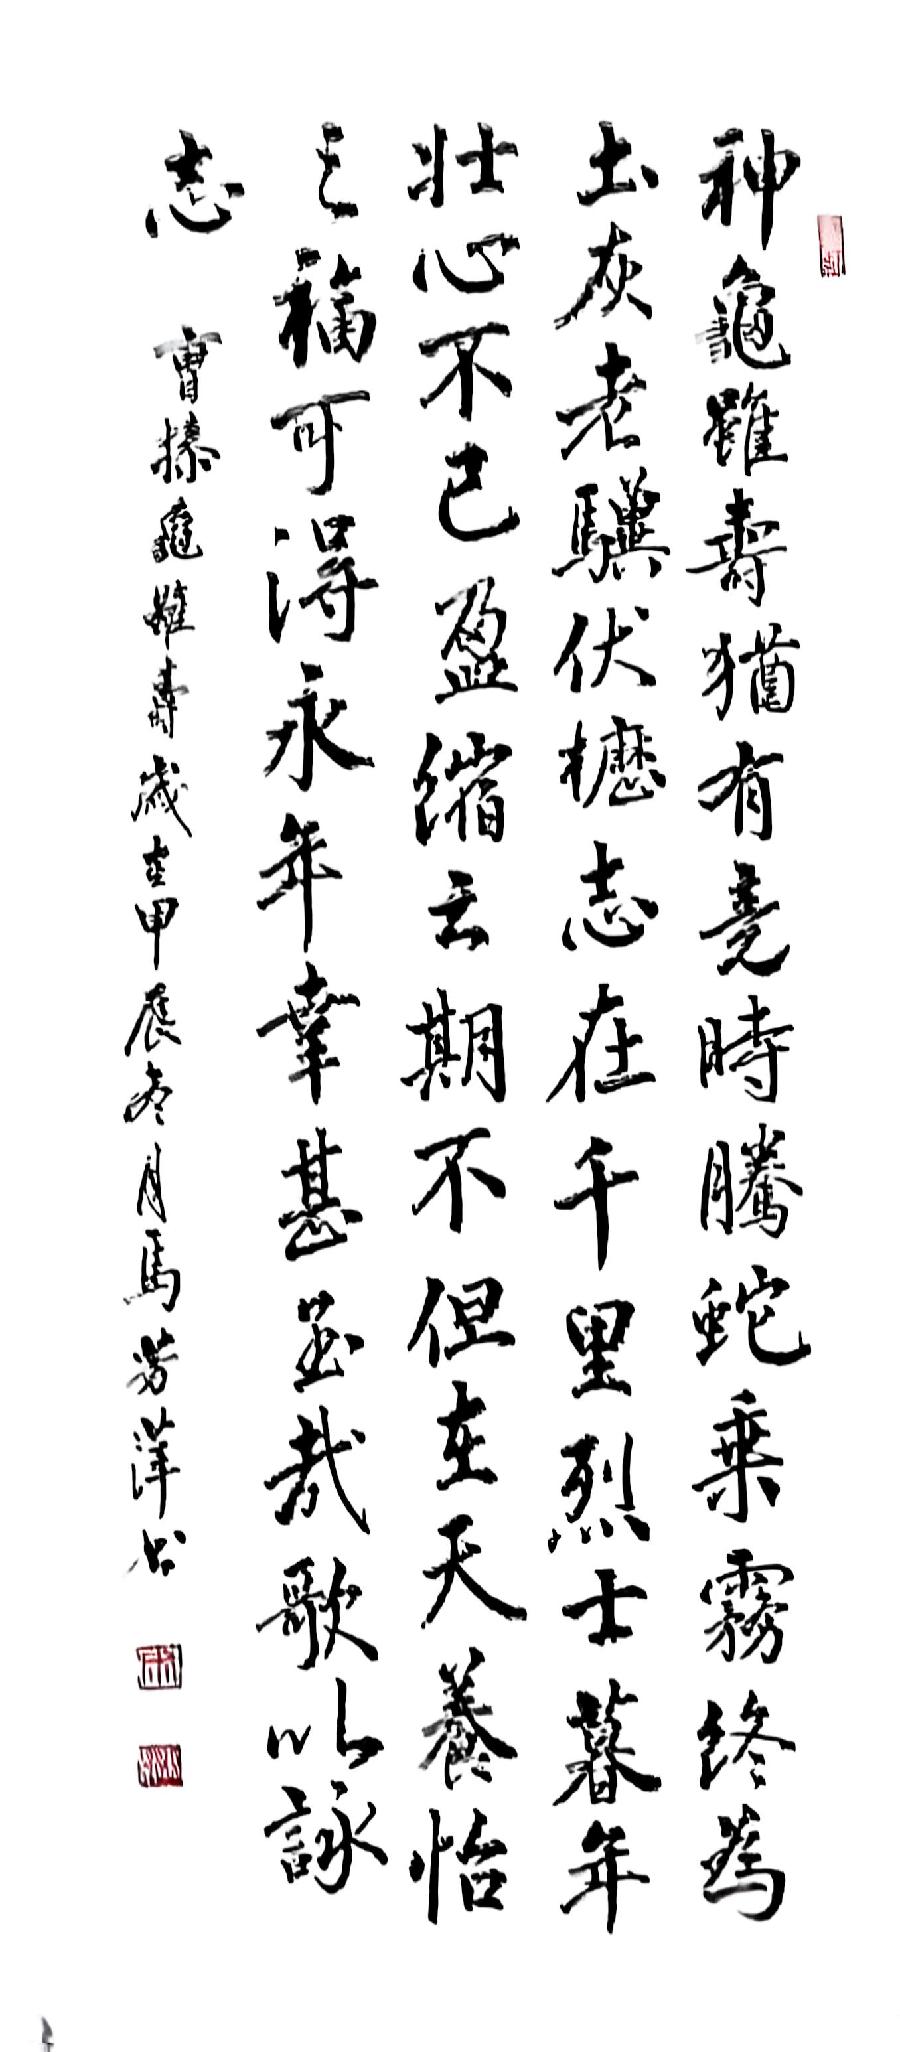 神龜雖壽猶有竟時騰蛇乘霧終為
土灰老驥伏櫪志在千里烈士暮年
壯心不已盈縮云期不但在天養怡
之福可得永年幸甚至哉歌以詠
志 曹操龜雖壽歲在甲辰冬月馬芳萍書